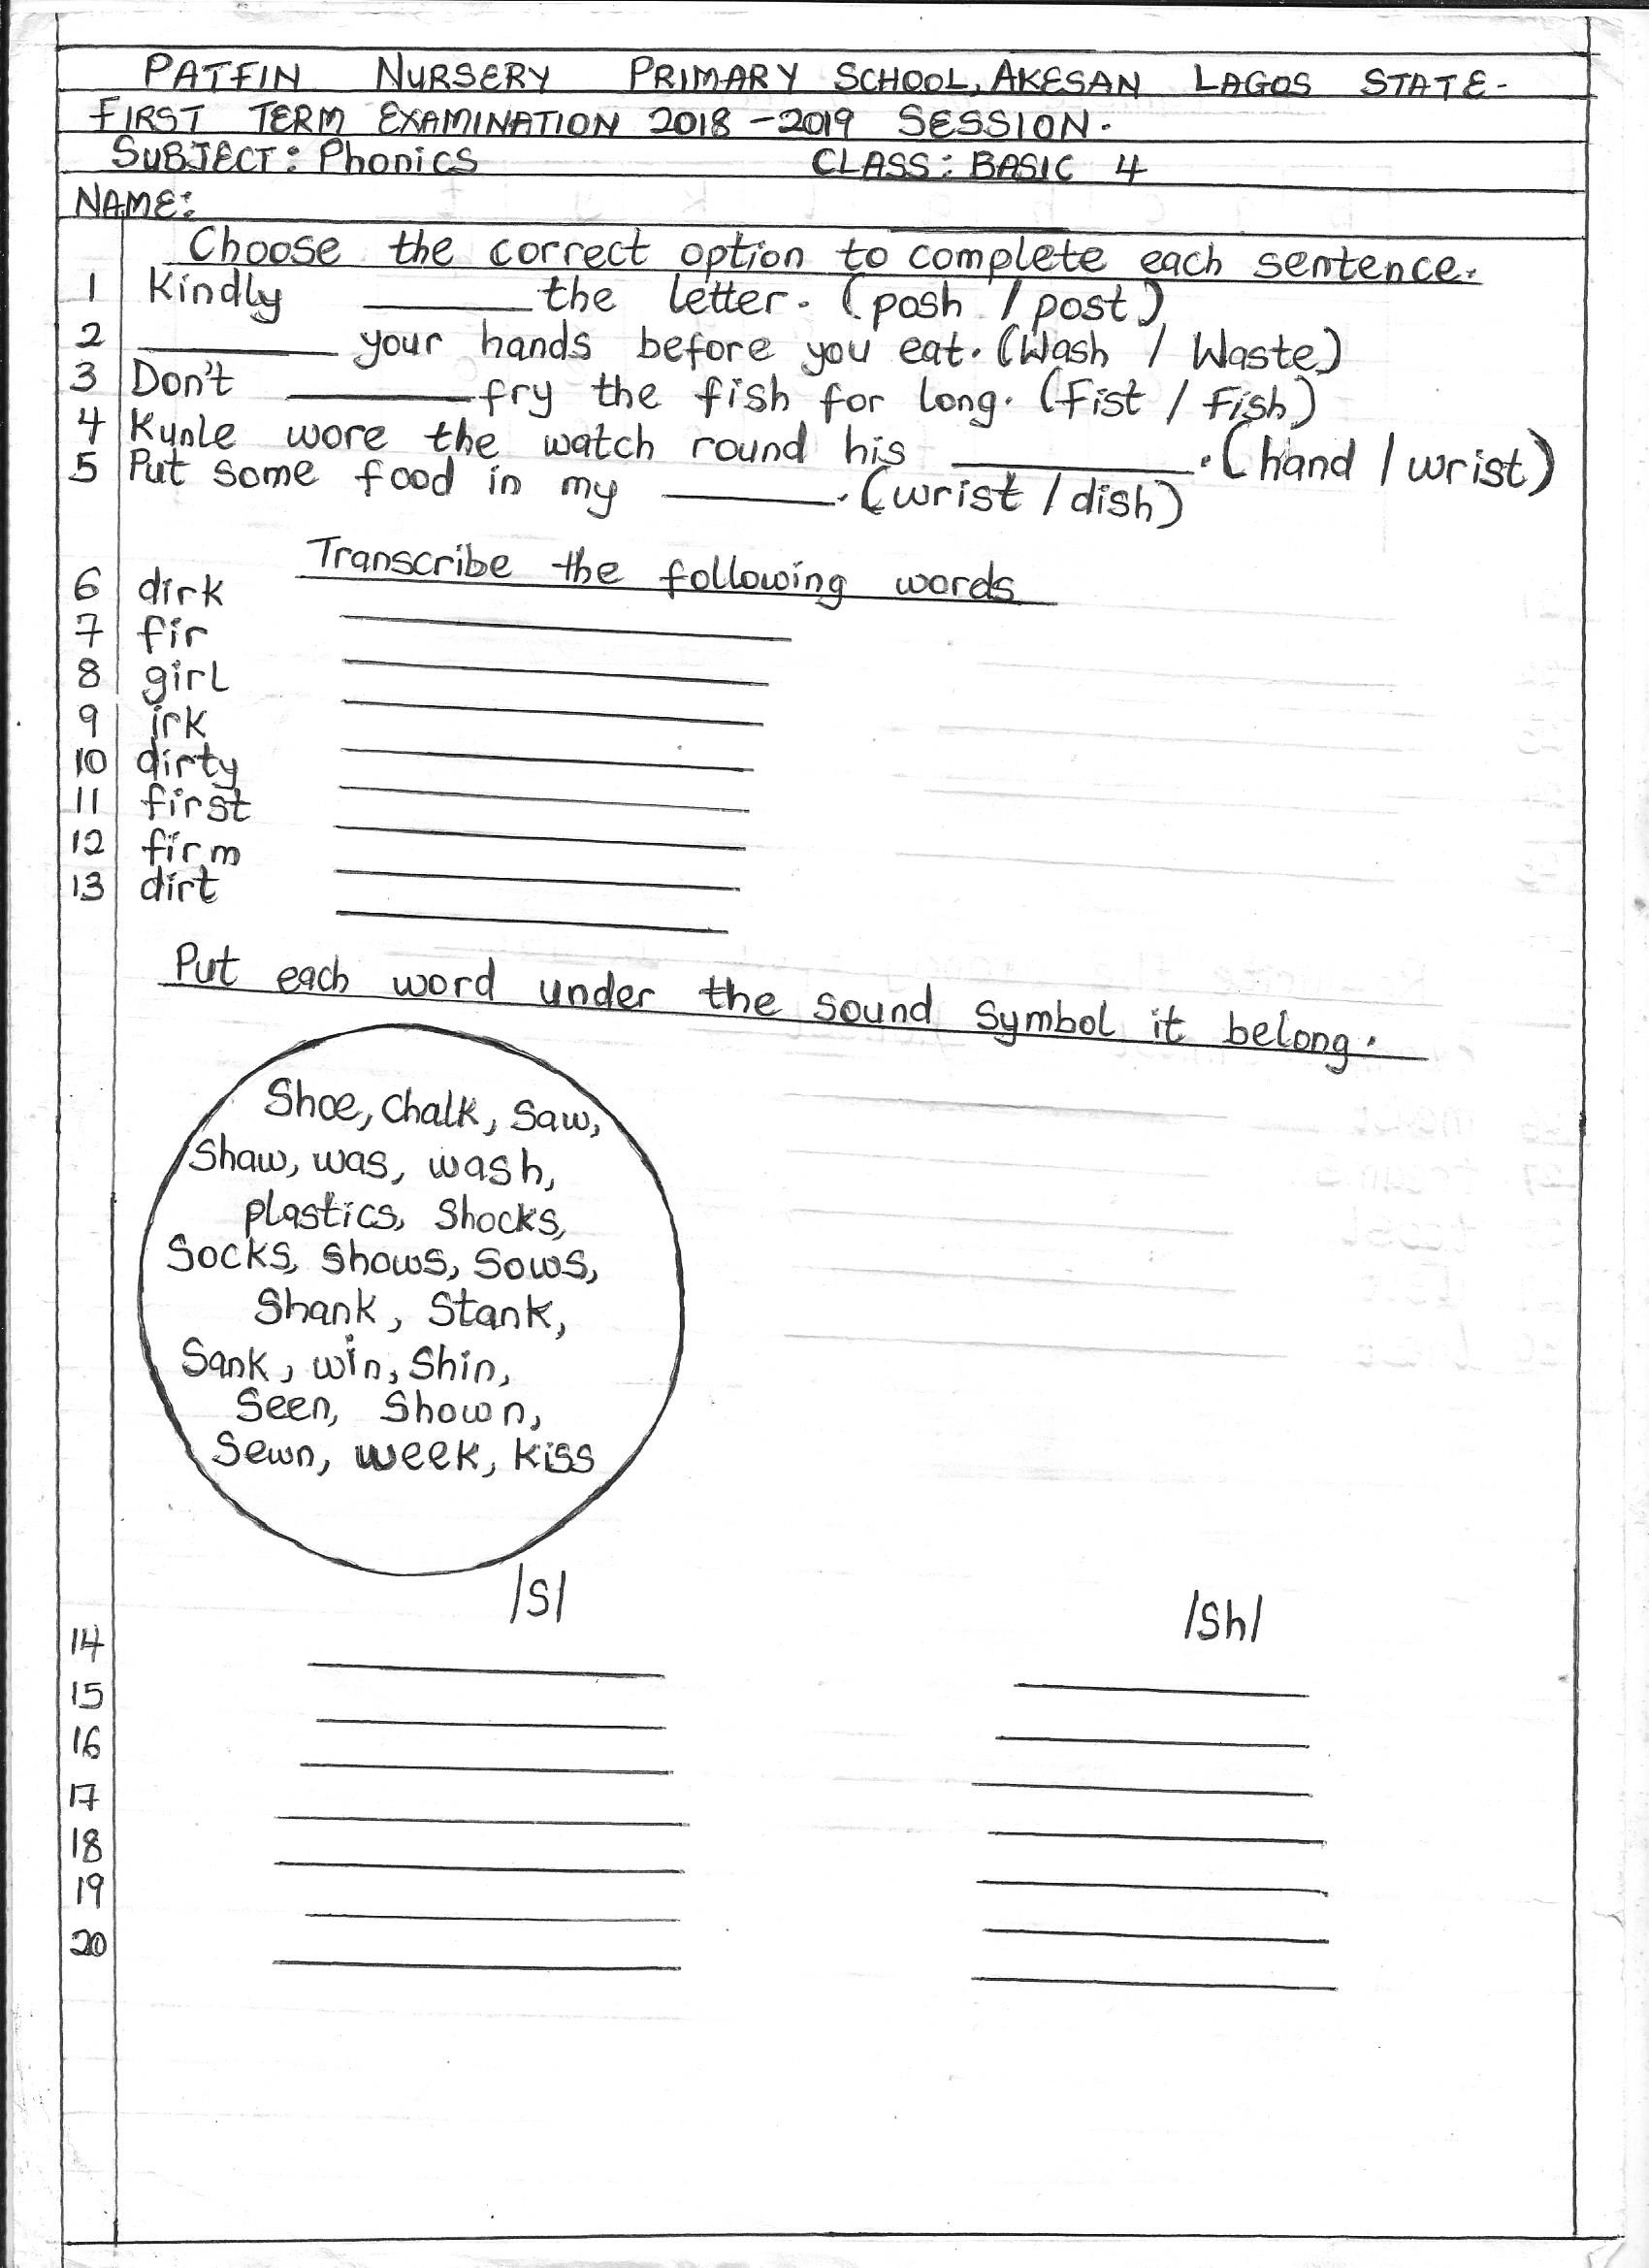 PATFIN NURSERY PRIMARY SCHOOL, AKESAN LAGOS STATE-
FIRST TERM EXAMINATION 2018-2019 SESSION.
SUBJECT: Phonics CLASS: BASIC 4
NAME:
Choose the correct option to complete each sentence.
1 Kindly ______ the letter. (posh / post)
2 ______ your hands before you eat. (Wash / Waste)
3 Don't ______ fry the fish for long. (Fist / Fish)
4 Kunle wore the watch round his ______. (hand / wrist)
5 Put some food in my ______. (wrist / dish)
Transcribe the following words
6 dirk
7 fir
8 girl
9 irk
10 dirty
11 first
12 firm
13 dirt
Put each word under the sound symbol it belong.
Shoe, Chalk, Saw,
Shaw, was, wash,
plastics, Shocks,
Socks, Shows, Sows,
Shank, Stank,
Sank, win, Shin,
Seen, Shown,
Sewn, week, kiss
/S/ /Sh/
14
15
16
17
18
19
20